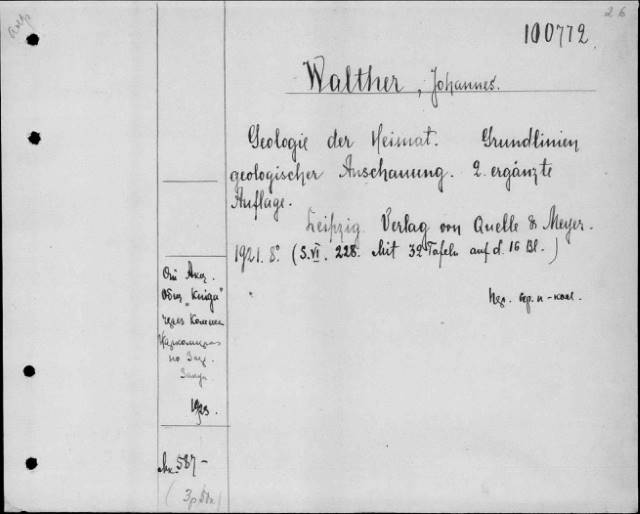 26
100772.
Walther, Johannes.
Geologie der Heimat. Grundlinien
geologischer Anschauung. 2. ergänzte
Auflage.
Leipzig. Verlag von Quelle & Meyer.
1921. 8°. (S. VI. 228. Mit 32 Tafeln auf d. 16 Bl.)
От Акц.
Общ. "Книга"
через
по Заг.
1923.
587-